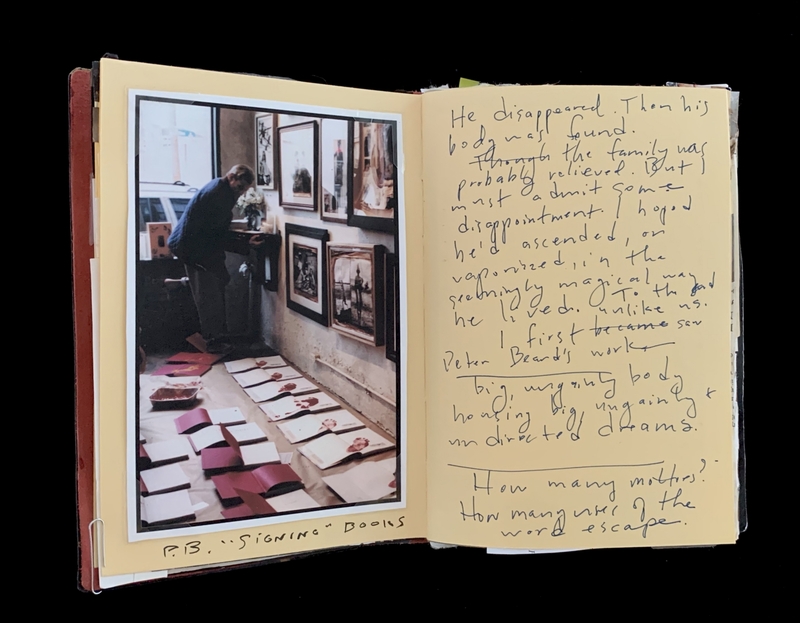 P.B. "SIGNING" BOOKS
He disappeared. Then his
body was found.
Though the family was
probably relieved. But I
must admit some
disappointment. I hoped
he'd ascended, or
vaporized, in the
seemingly magical way
he lived. To the end
unlike us.
I first became saw
Peter Beard's work
big, ungainly body
housing big, ungainly &
undirected dreams.
How many mottoes?
How many uses of the
word escape.